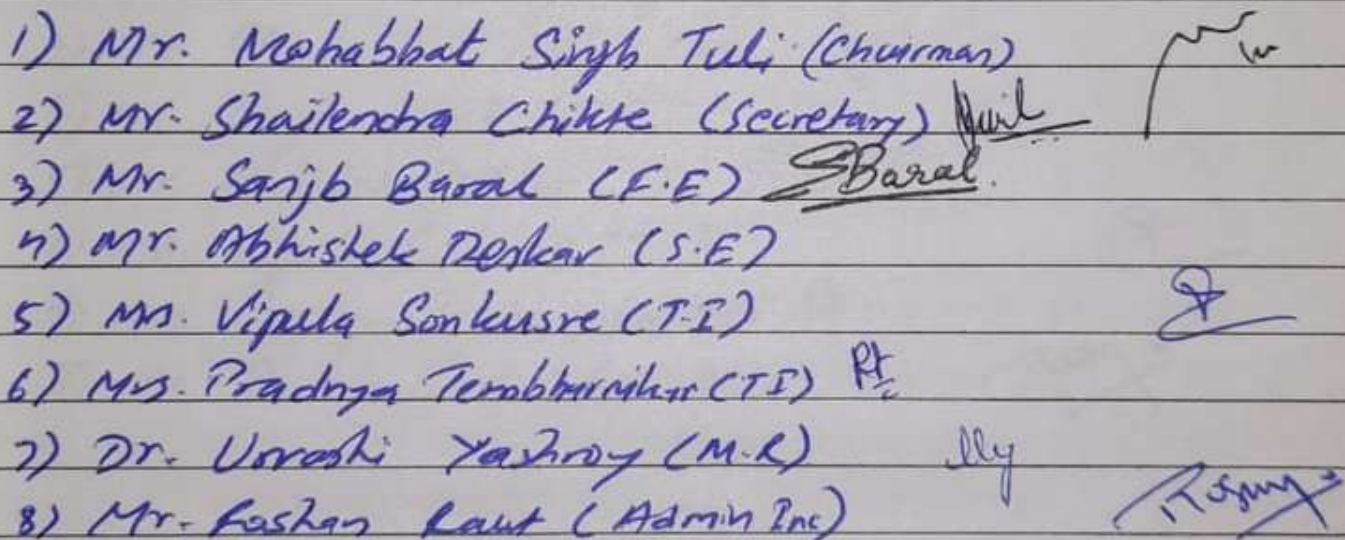 1) Mr. Mohabbat Singh Tuli (Chairman)
2) Mr. Shailendra Chikte (Secretary)
3) Mr. Sanjb Baral (F.E) SBaral.
4) Mr. Abhishek Deskar (S.E)
5) Mrs. Vipula Sonkusre (T.I)
6) Mrs. Pradnya Tembhurnikar (TI) Pt
7) Dr. Urvashi Yashroy (M.R)
8) Mr. Roshan Raut (Admin Inc)